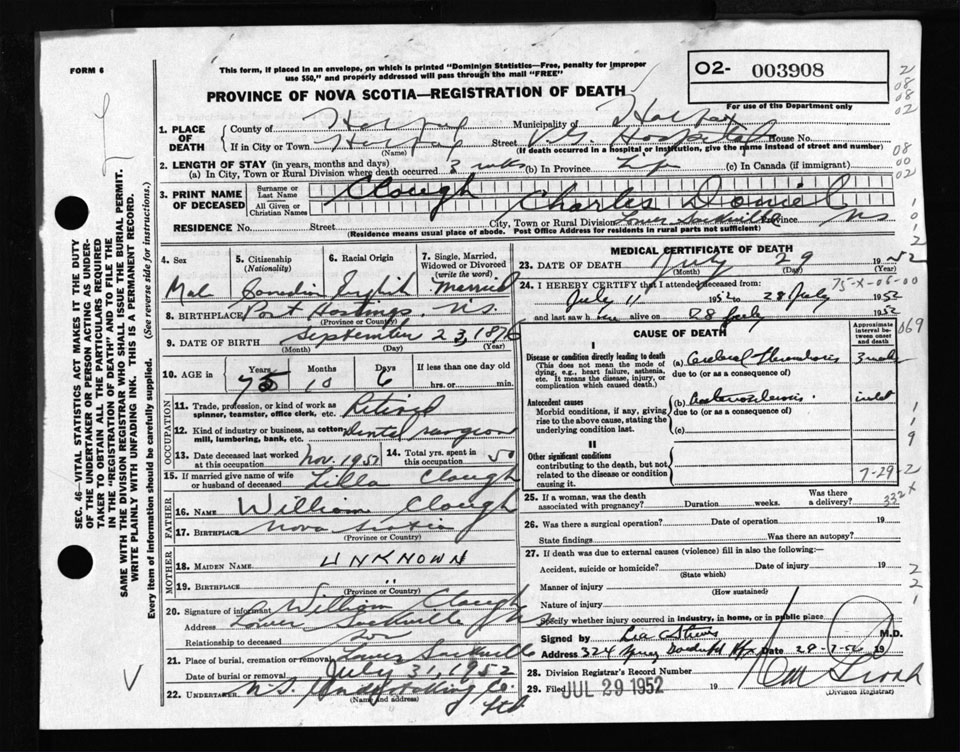 FORM 6
This form, if placed in an envelope, on which is printed "Dominion Statistics—Free, penalty for improper
use $50," and properly addressed will pass through the mail "FREE"
O2- 003908
For use of the Department only
PROVINCE OF NOVA SCOTIA—REGISTRATION OF DEATH
2
08
08
02
1. PLACE OF DEATH
County of Halifax Municipality of Halifax
If in City or Town Halifax (Name) Street V.G. Hospital House No.
(If death occurred in a hospital or institution, give the name instead of street and number)
2. LENGTH OF STAY (in years, months and days)
(a) In City, Town or Rural Division where death occurred 3 wks (b) In Province Life (c) In Canada (if immigrant)
08
00
02
3. PRINT NAME OF DECEASED
Surname or Last Name Clough
All Given or Christian Names Charles Daniel
RESIDENCE No. Street City, Town or Rural Division Lower Sackville Province NS
(Residence means usual place of abode. Post Office Address for residents in rural parts not sufficient)
1
0
1
2
4. Sex 5. Citizenship (Nationality) 6. Racial Origin 7. Single, Married, Widowed or Divorced (write the word)
Male Canadian English Married
8. BIRTHPLACE Port Hastings, N.S.
(Province or Country)
9. DATE OF BIRTH September 23, 1876
(Month) (Day) (Year)
10. AGE in Years Months Days If less than one day
75 10 6 hrs. or min.
OCCUPATION
11. Trade, profession, or kind of work as spinner, teamster, office clerk, etc. Retired
12. Kind of industry or business, as cotton mill, lumbering, bank, etc. Dental surgeon
13. Date deceased last worked at this occupation Nov. 1951 14. Total yrs. spent in this occupation 50
15. If married give name of wife or husband of deceased Lilla Clough
FATHER
16. Name William Clough
17. Birthplace Nova Scotia
(Province or Country)
MOTHER
18. Maiden Name UNKNOWN
19. Birthplace "
(Province or Country)
20. Signature of informant William Clough
Address Lower Sackville NS
Relationship to deceased son
21. Place of burial, cremation or removal Lower Sackville
Date of burial or removal July 31, 1952
22. Undertaker N.S. Undertaking Co. Ltd
(Name and address)
MEDICAL CERTIFICATE OF DEATH
23. DATE OF DEATH July 29 1952
(Month) (Day) (Year)
24. I HEREBY CERTIFY that I attended deceased from:
75-X-06-00
July 11 1952 to 28 July 1952
and last saw him alive on 28 July 1952
CAUSE OF DEATH
Approximate interval between onset and death
069
I
Disease or condition directly leading to death
(This does not mean the mode of dying, e.g., heart failure, asthenia, etc. It means the disease, injury, or complication which caused death.)
(a) Cerebral thrombosis 3 weeks
due to (or as a consequence of)
Antecedent causes
Morbid conditions, if any, giving rise to the above cause, stating the underlying condition last.
(b) Arteriosclerosis
due to (or as a consequence of)
(c)
1
1
9
II
Other significant conditions
contributing to the death, but not related to the disease or condition causing it.
7-29-2
332X
25. If a woman, was the death associated with pregnancy? Duration weeks. Was there a delivery?
26. Was there a surgical operation? Date of operation 19
State findings Was there an autopsy?
27. If death was due to external causes (violence) fill in also the following:—
Accident, suicide or homicide? Date of injury 19
(State which)
Manner of injury
(How sustained)
Nature of injury
Specify whether injury occurred in industry, in home, or in public place
2
2
1
Signed by M.D.
Address 324 Hfx Date 28-7-52 19
28. Division Registrar's Record Number
29. Filed JUL 29 1952 19
(Division Registrar)
SEC. 46—VITAL STATISTICS ACT MAKES IT THE DUTY
OF THE UNDERTAKER OR PERSON ACTING AS UNDER-
TAKER TO OBTAIN ALL THE PARTICULARS REQUIRED
IN THE "REGISTRATION OF DEATH" AND TO FILE THE
SAME WITH THE DIVISION REGISTRAR WHO SHALL ISSUE THE BURIAL PERMIT.
WRITE PLAINLY WITH UNFADING INK. THIS IS A PERMANENT RECORD.
Every item of information should be carefully supplied. (See reverse side for instructions.)